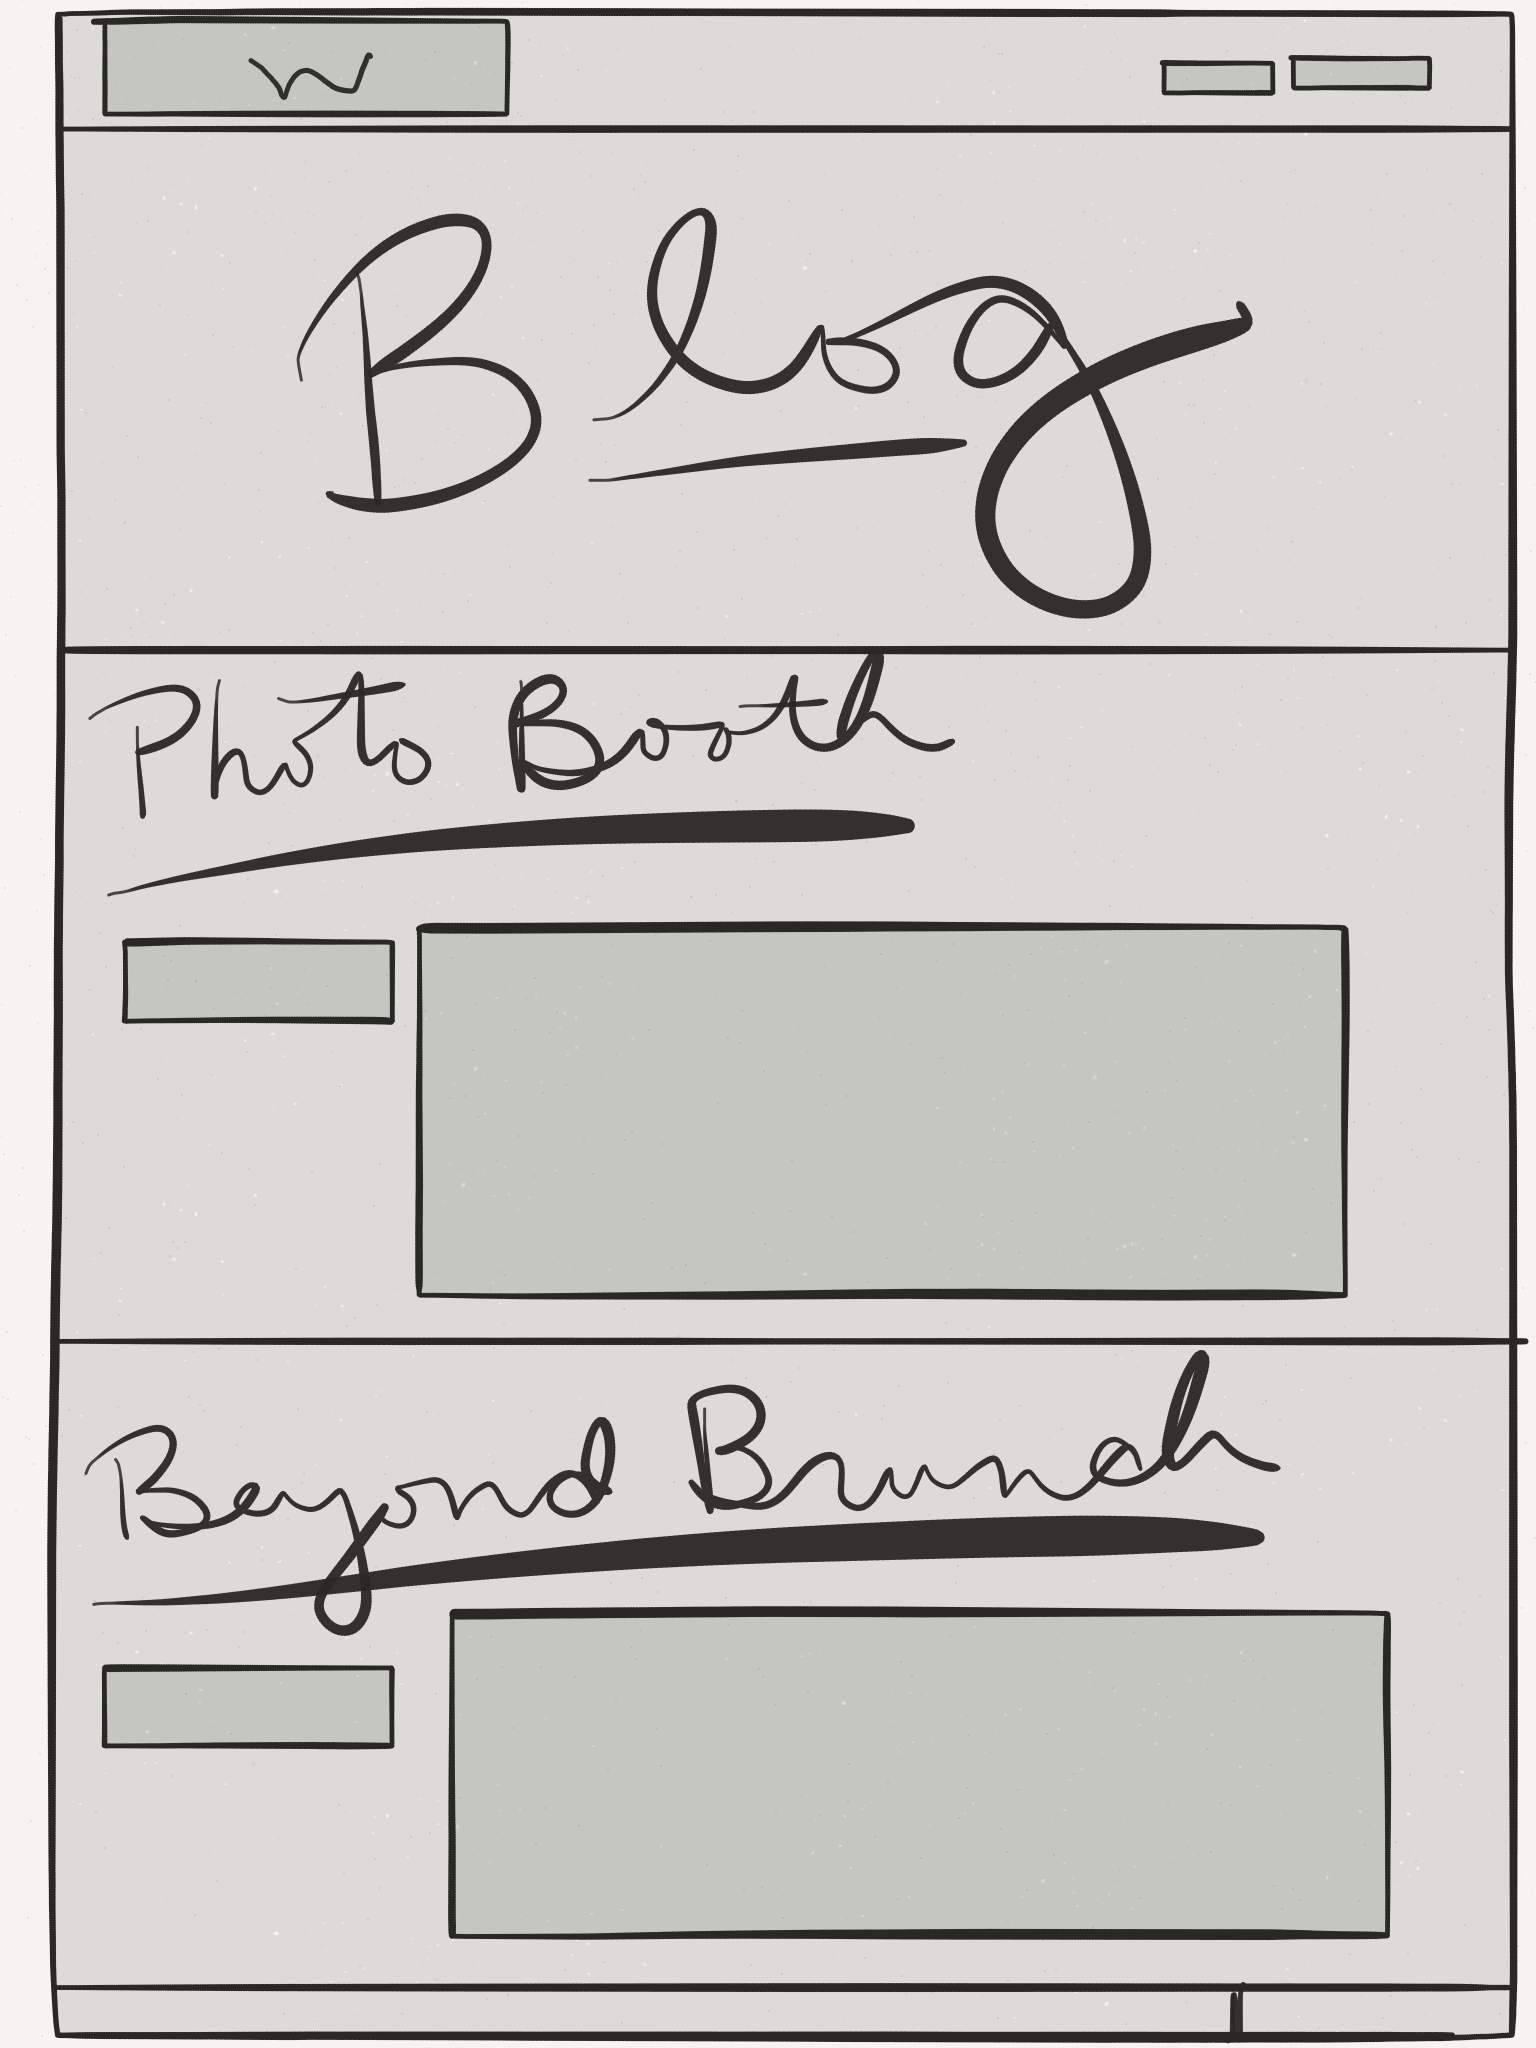 W
Blog
Photo Booth
Beyond Brunch